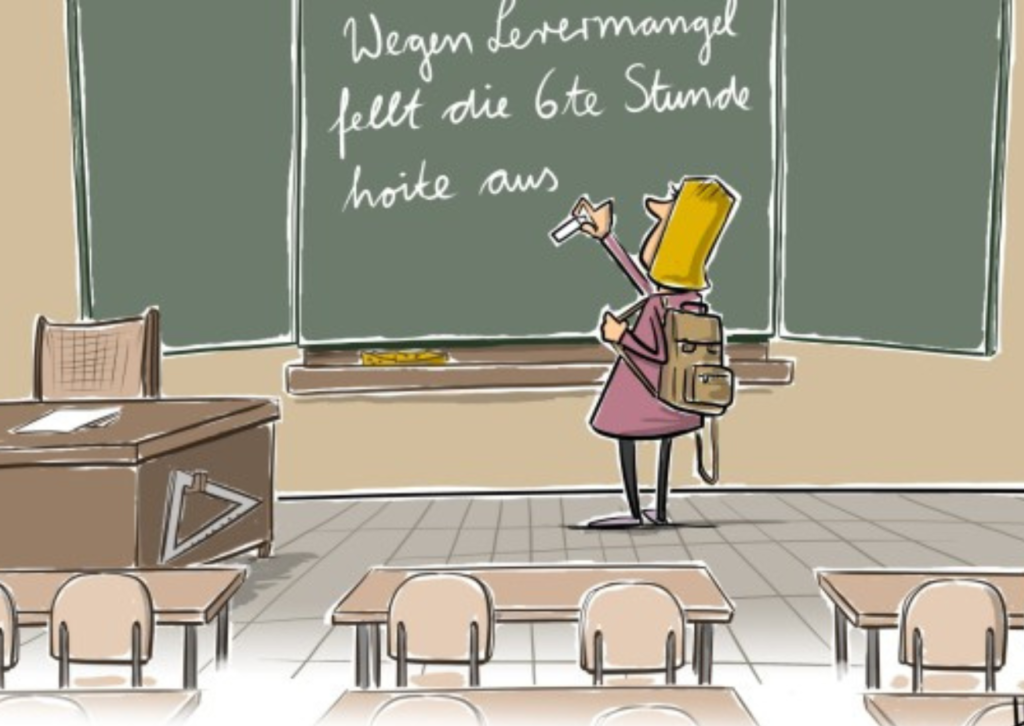 Wegen Lerermangel
fellt die 6te Stunde
hoite aus